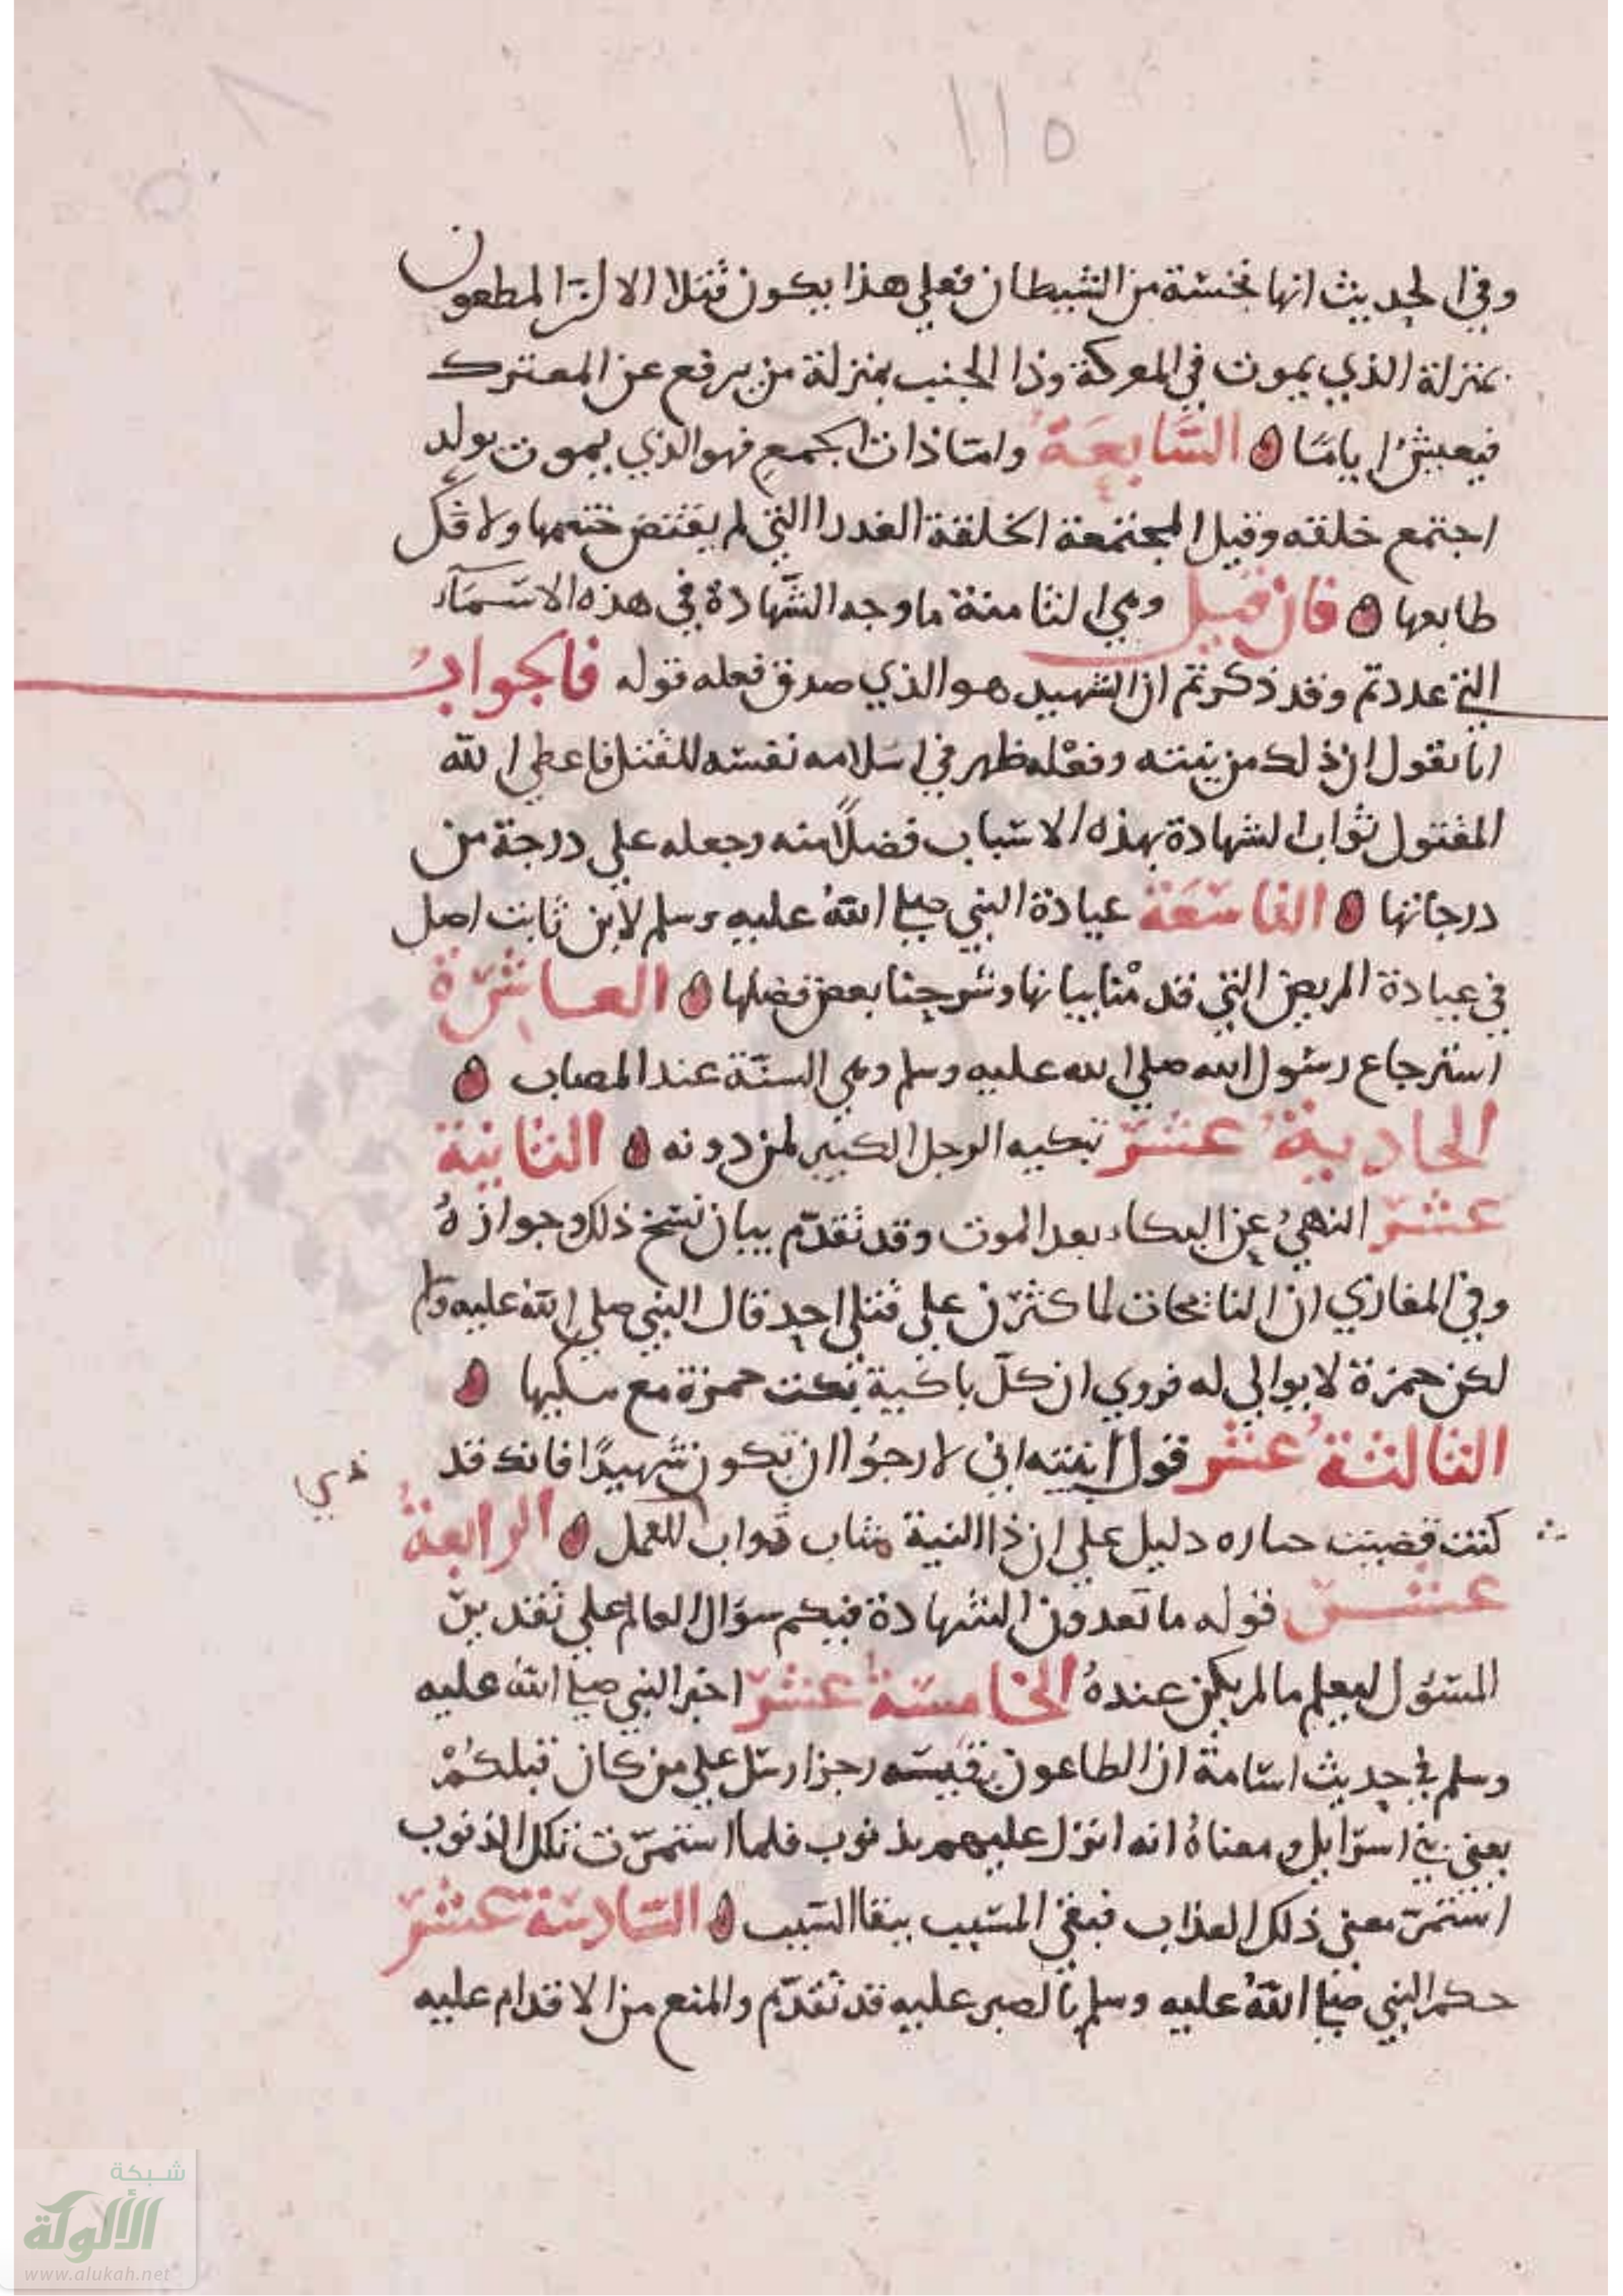 ١١٥
وفي الحديث انها نخسة من الشيطان فعلي هذا يكون قتلا الا ان المطعون
بمنزلة الذي يموت في المعركة وذا الجنب بمنزلة من يرفع عن المعترك
فيعيش اياما السابعة واما ذات الجمع فهو الذي يموت بولد
اجتمع خلقه وقيل المجتمعة الخلقة العذرا التي لم يفتض ختمها ولا فك
طابعها فان قيل وهي الثامنة ما وجه الشهادة في هذه الاسماء
التي عددتم وقد ذكرتم ان الشهيد هو الذي صدق فعله قوله فالجواب
انا نقول ان ذلك من نيته وفعله ظهر في اسلامه نفسه للقتل فاعطي الله
المقتول ثواب الشهادة بهذه الاسباب فضلا منه وجعله علي درجة من
درجاتها التاسعة عيادة النبي صلي الله عليه وسلم لابن ثابت اصل
في عيادة المريض التي قدمنا بيانها وشرحنا بعض فضلها العاشرة
استرجاع رسول الله صلي الله عليه وسلم وهي السنة عند المصاب
الحادية عشر تكنيه الرجل الكبير لمن دونه الثانية
عشر النهي عن البكاء بعد الموت وقد تقدم بيان نسخ ذلك وجوازه
وفي المغازي ان النائحات لما كثرن علي قتلي احد قال النبي صلي الله عليه وسلم
لكن حمزة لا بواكي له فروي ان كل باكية بكت حمزة مع
الثالثة عشر قول ابنته اني لارجوا ان تكون شهيدا فانك قد
كنت قضيت دليل علي ان ذا النية مثاب ثواب العمل الرابعة
عشر قوله ما تعدون الشهادة فيكم سؤال العالم علي تقدير
المسؤل ليعلم ما لم يكن عنده الخامسة عشر اخبر النبي صلي الله عليه
وسلم في حديث اسامة ان الطاعون رجز ارسل علي من كان قبلكم
يعني بني اسرايل ومعناه انه انزل عليهم بذنوب فلما استمرت تلك الذنوب
استمر يعني ذلك العذاب فبقي المسبب ببقا السبب السادسة عشر
حكم النبي صلي الله عليه وسلم بالصبر عليه قد تقدم والمنع من الاقدام عليه
شبكة
الألوكة
www.alukah.net